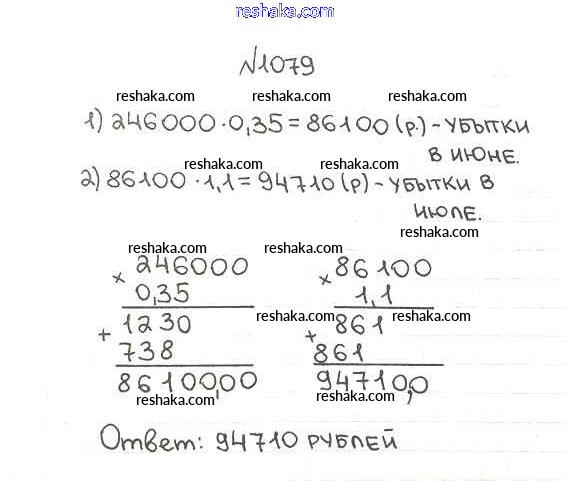 reshaka.com
№1079
reshaka.com reshaka.com reshaka.com
1) 246000·0,35=86100(р.)-УБЫТКИ
В ИЮНЕ.
reshaka.com reshaka.com
2) 86100·1,1=94710(р)-УБЫТКИ В
ИЮЛЕ.
reshaka.com
reshaka.com reshaka.com
× 246000 × 86100
0,35 1,1
reshaka.com
+ 1230 + 861
738 861
8610000 94710,0
reshaka.com reshaka.com
Ответ: 94710 РУБЛЕЙ